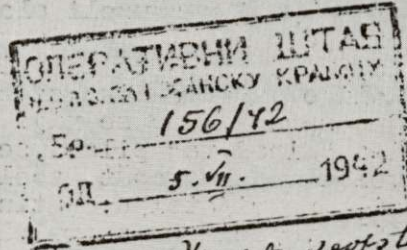 ОПЕРАТИВНИ ШТАБ
КРАЈИНУ
Бр. 156/42
ОД 5. VII. 1942